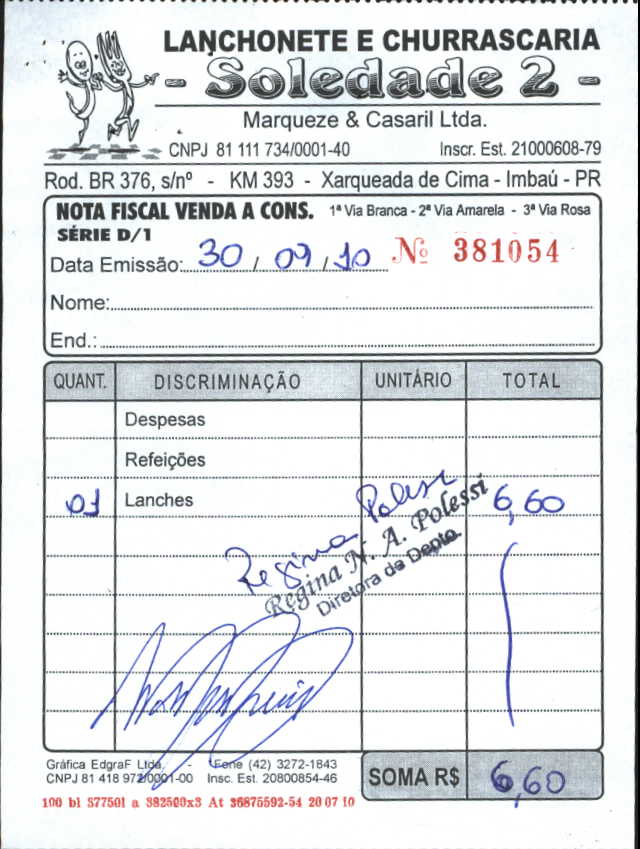 LANCHONETE E CHURRASCARIA
- Soledade 2 -
Marqueze & Casaril Ltda.
CNPJ 81 111 734/0001-40 Inscr. Est. 21000608-79
Rod. BR 376, s/nº - KM 393 - Xarqueada de Cima - Imbaú - PR
NOTA FISCAL VENDA A CONS. 1ª Via Branca - 2ª Via Amarela - 3ª Via Rosa
SÉRIE D/1
Data Emissão: 30 / 09 / 10 Nº 381054
Nome:
End.:
QUANT. DISCRIMINAÇÃO UNITÁRIO TOTAL
Despesas
Refeições
01 Lanches 6,60
Regina Polessi
Regina N. A. Polessi
Diretora de Depto.
Gráfica EdgraF Ltda. - Fone (42) 3272-1843
CNPJ 81 418 972/0001-00 Insc. Est. 20800854-46
SOMA R$ 6,60
100 bl 377501 a 382500x3 At 36875592-54 20 07 10